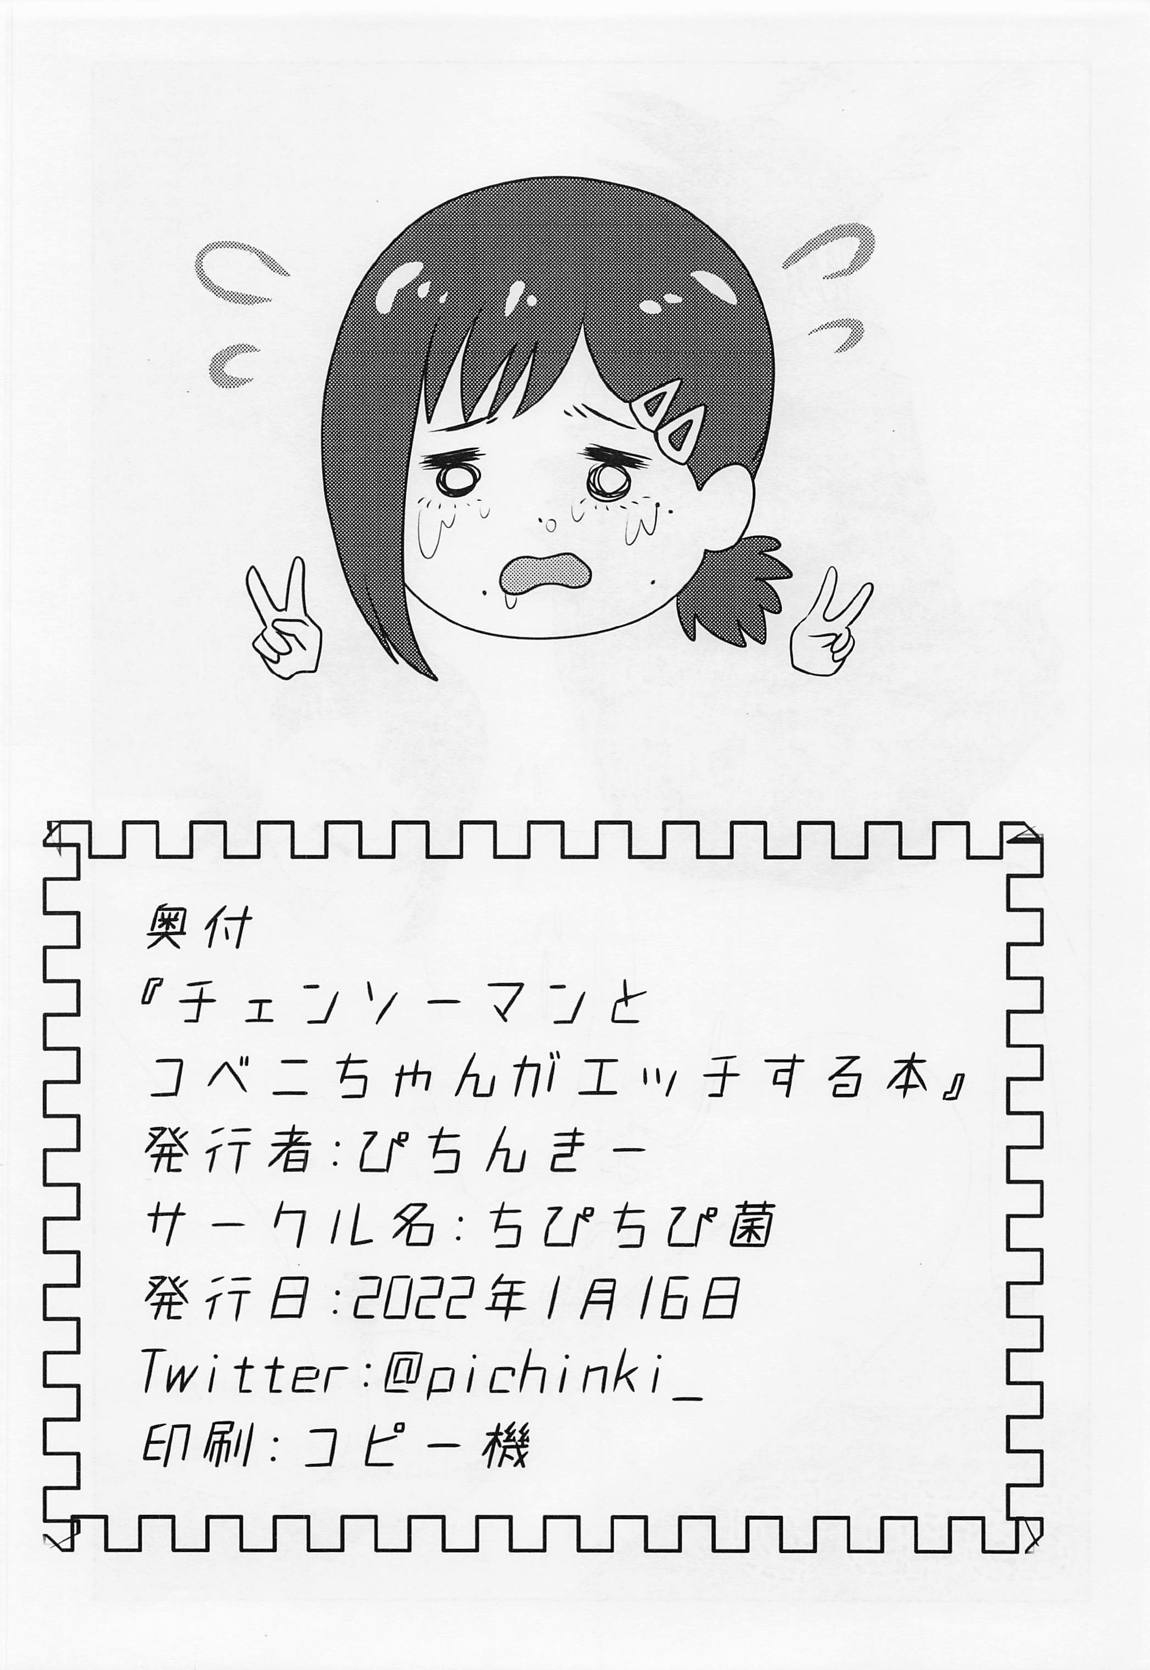 奥付
『チェンソーマンと
コベニちゃんがエッチする本』
発行者:ぴちんきー
サークル名:ちぴちぴ菌
発行日:2022年1月16日
Twitter:@pichinki_
印刷:コピー機